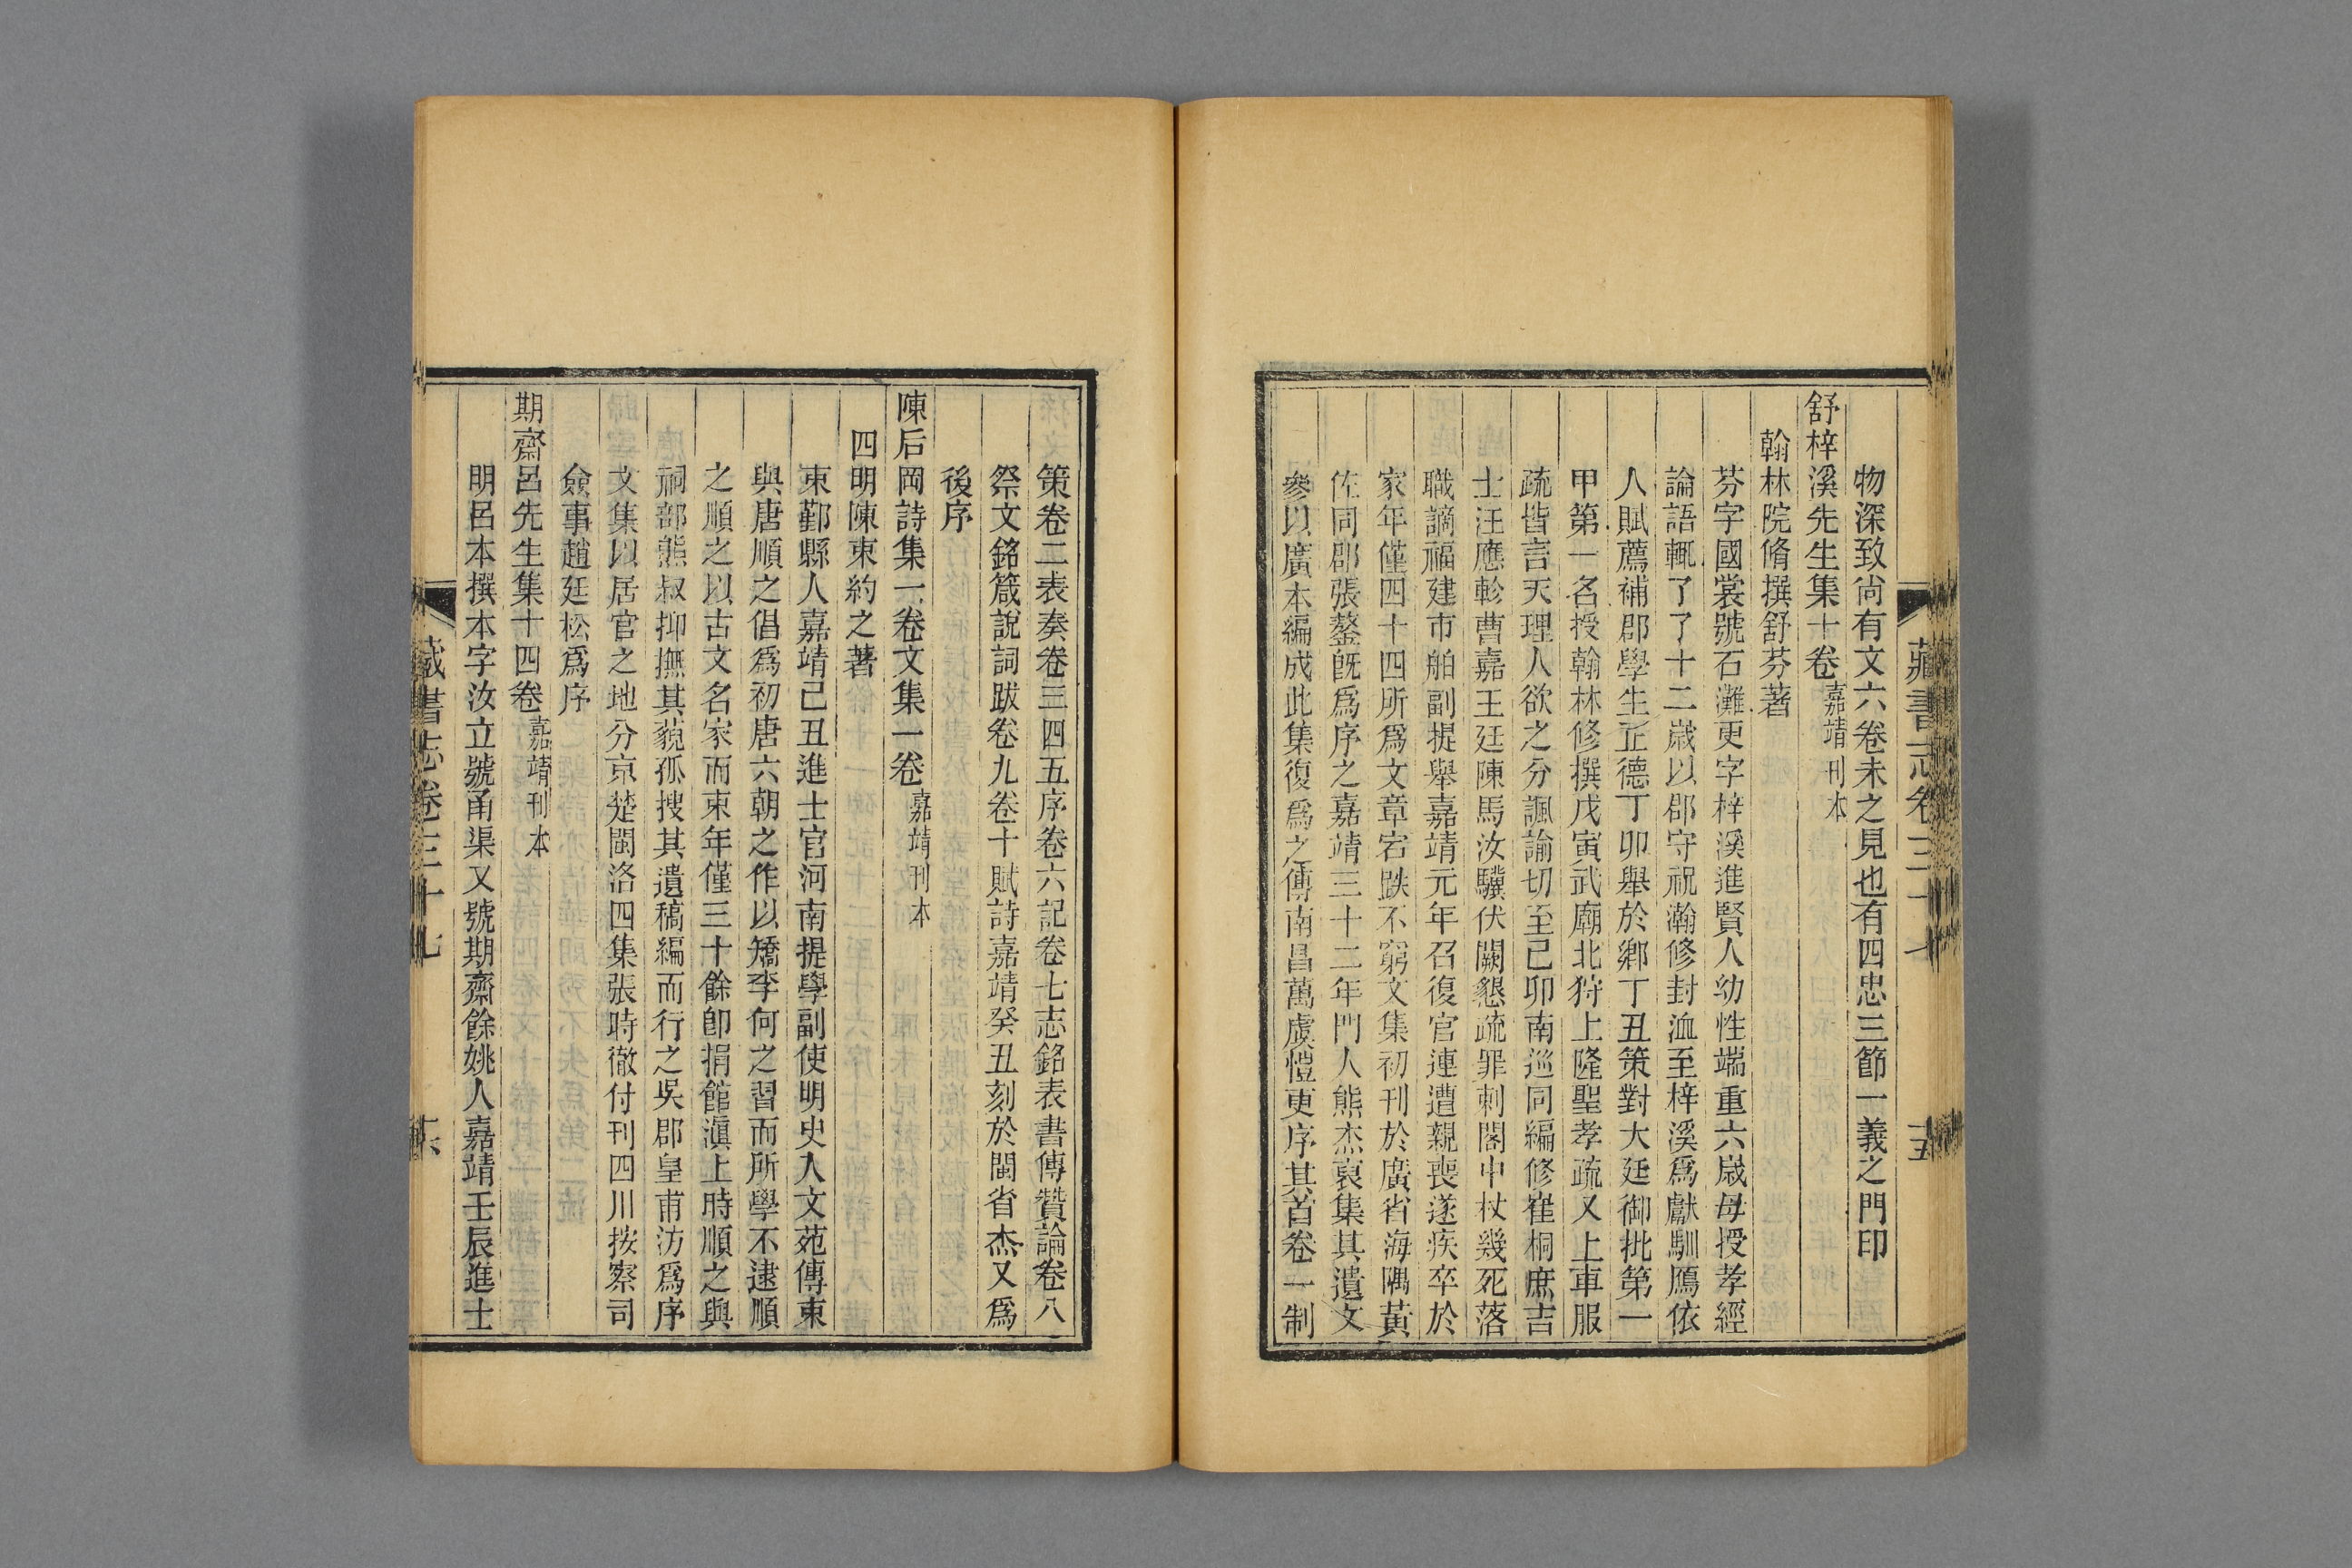 藏書志卷三十七
十五
物深致尚有文六卷未之見也有四忠三節一義之門印
舒梓溪先生集十卷嘉靖刊本
翰林院脩撰舒芬著
芬字國裳號石灘更字梓溪進賢人幼性端重六歲母授孝經
論語輒了了十二歲以郡守祝瀚修封洫至梓溪爲獻馴鴈依
人賦薦補郡學生正德丁卯舉於鄉丁丑策對大廷御批第一
甲第一名授翰林修撰戊寅武廟北狩上隆聖孝疏又上車服
疏皆言天理人欲之分諷諭切至己卯南巡同編修崔桐庶吉
士汪應軫曹嘉王廷陳馬汝驥伏闕懇疏罪刺闔中杖幾死落
職謫福建市舶副提舉嘉靖元年召復官連遭親喪遂疾卒於
家年僅四十四所爲文章宕跌不窮文集初刊於廣省海隅黃
佐同郡張鏊旣爲序之嘉靖三十二年門人熊杰裒集其遺文
參以廣本編成此集復爲之傳南昌萬虞愷更序其首卷一制
策卷二表奏卷三四五序卷六記卷七志銘表書傳贊論卷八
祭文銘箴說詞跋卷九卷十賦詩嘉靖癸丑刻於閩省杰又爲
後序
陳后岡詩集一卷文集一卷嘉靖刊本
四明陳束約之著
束鄞縣人嘉靖己丑進士官河南提學副使明史入文苑傳束
與唐順之倡爲初唐六朝之作以矯李何之習而所學不逮順
之順之以古文名家而束年僅三十餘卽捐館滇上時順之與
祠部熊叔抑撫其藐孤搜其遺稿編而行之吳郡皇甫汸爲序
文集以居官之地分京楚閩洛四集張時徹付刊四川按察司
僉事趙廷松爲序
期齋呂先生集十四卷嘉靖刊本
明呂本撰本字汝立號甬渠又號期齋餘姚人嘉靖壬辰進士
藏書志卷三十七
十六